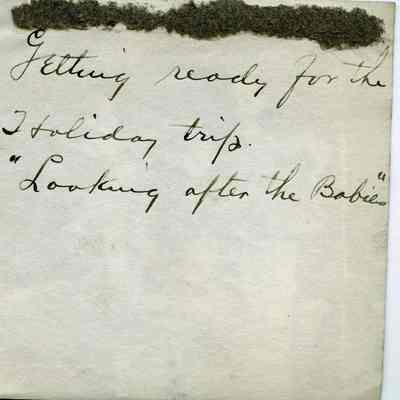 Getting ready for the
Holiday trip.
"Looking after the Babies"